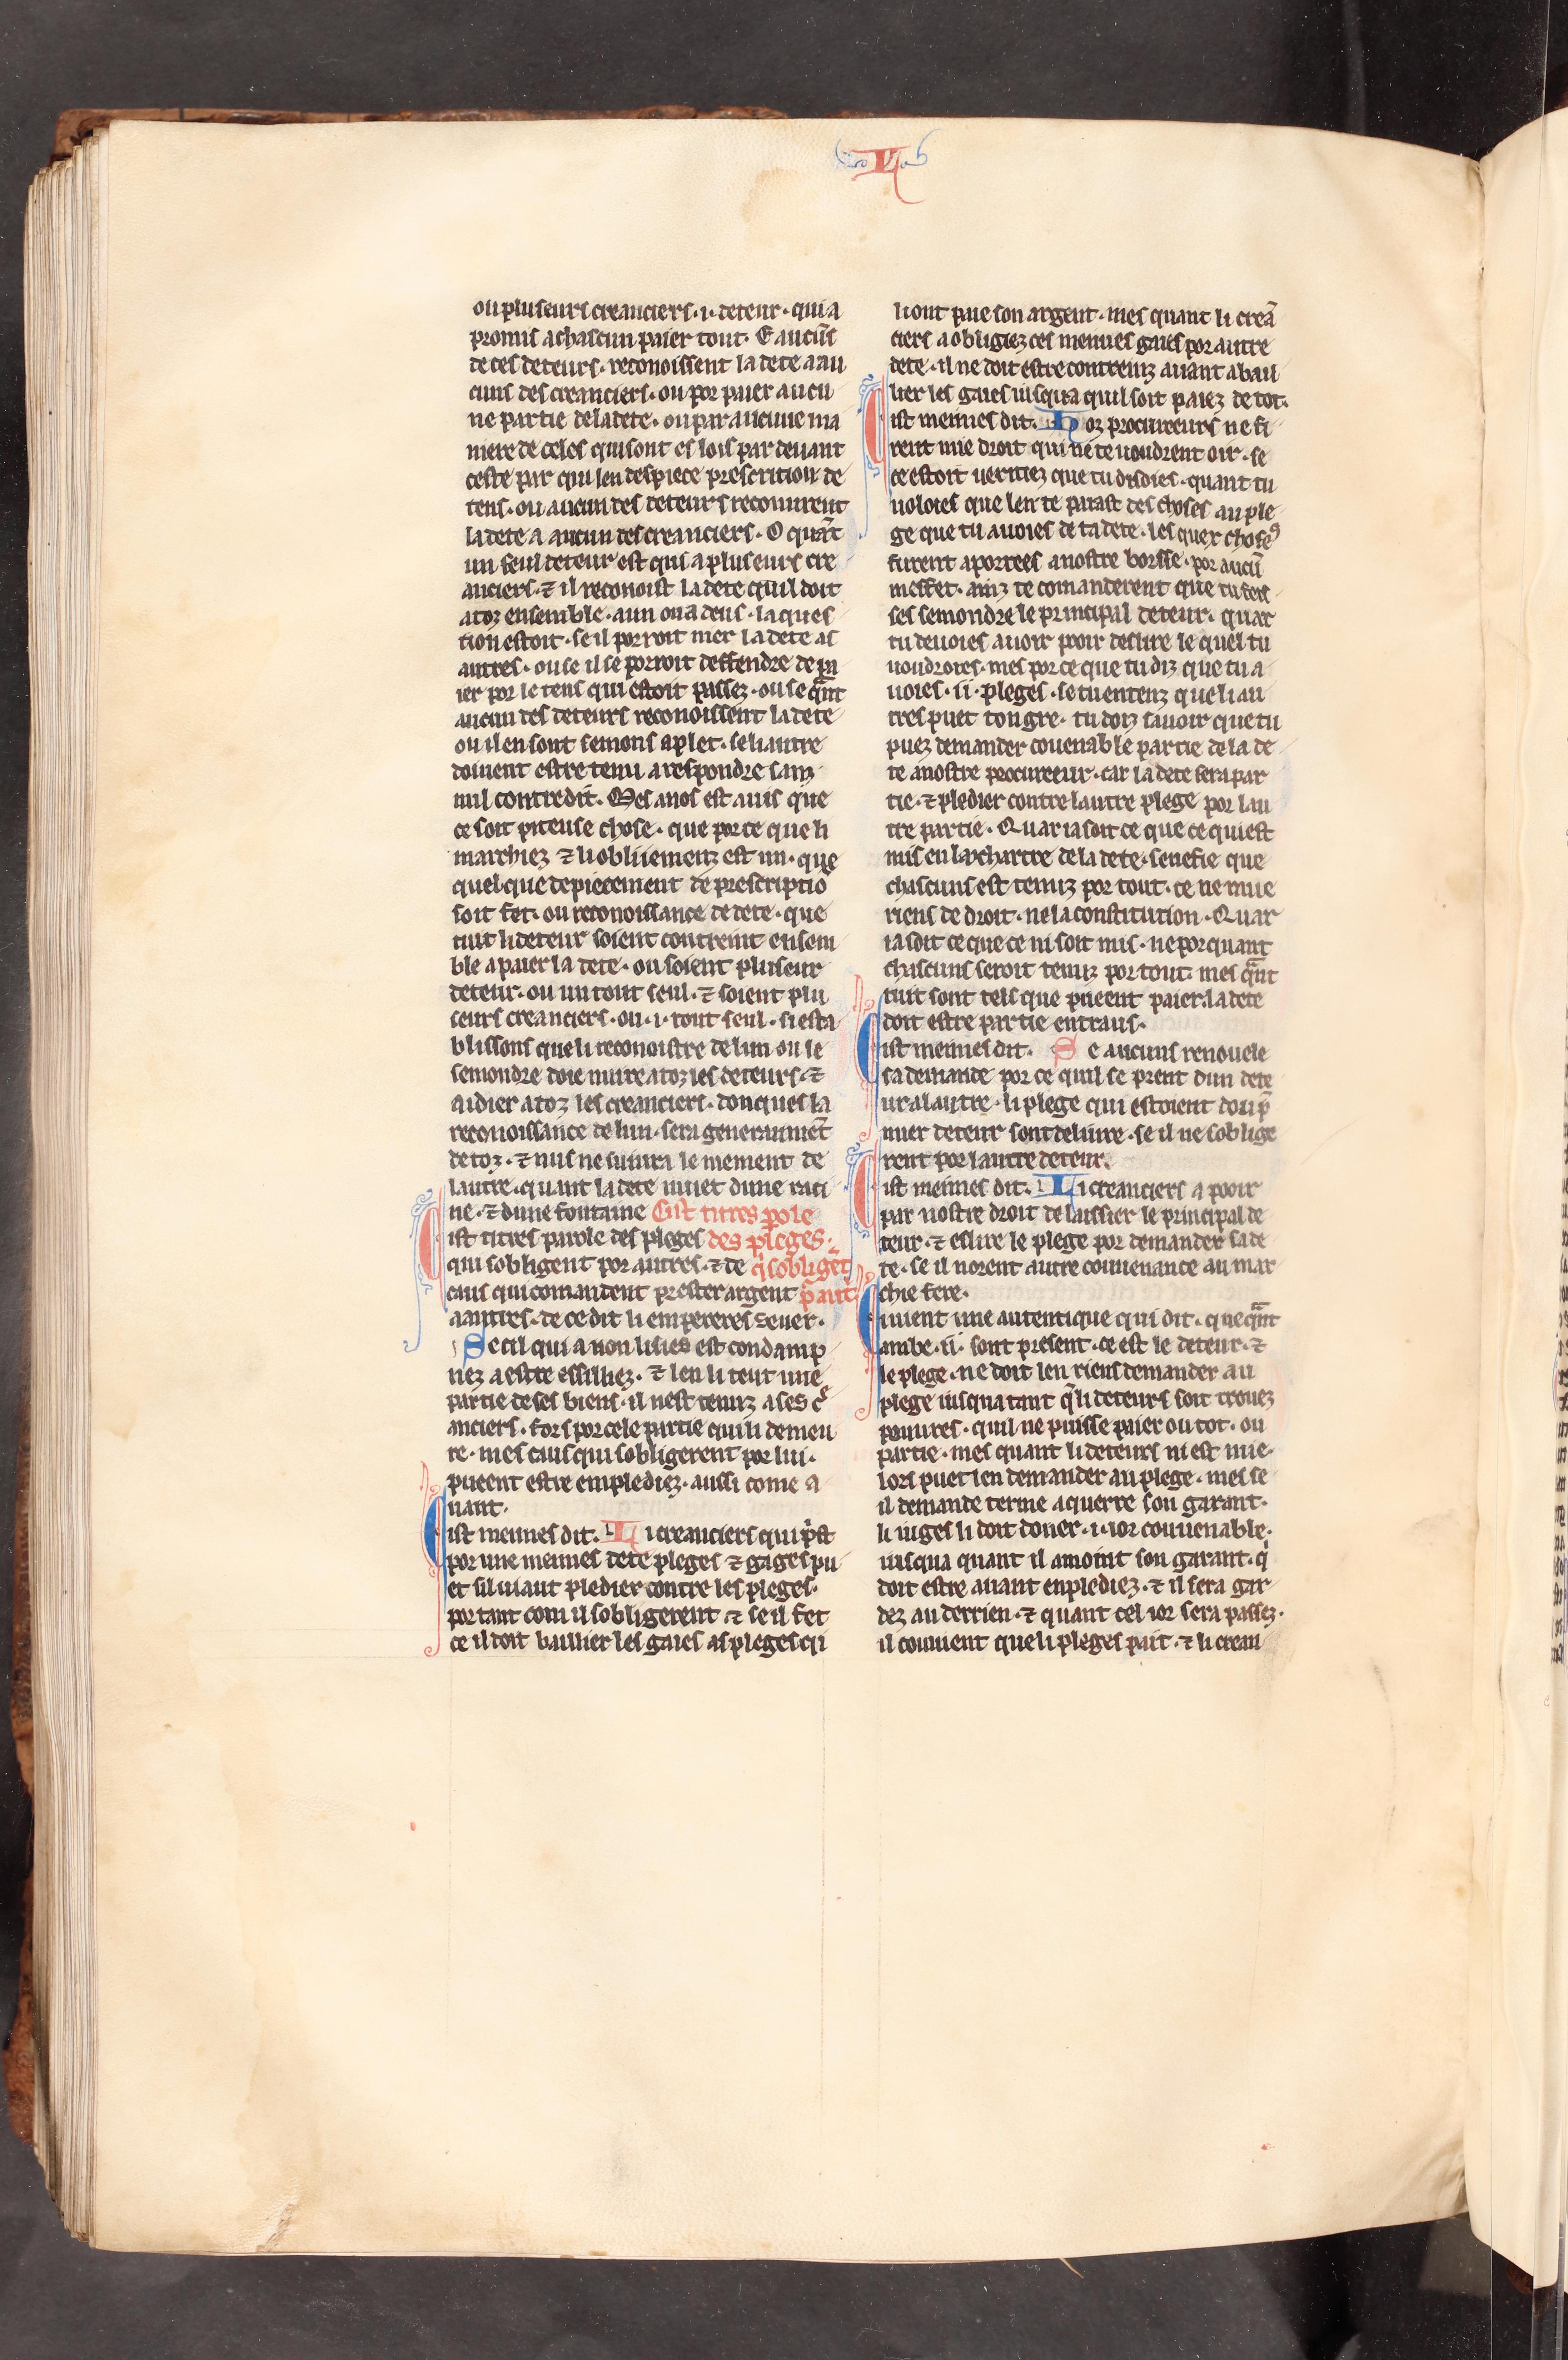 V
ou pluseurs creanciers · i · deteur · qui a
promis a chascun paier tout · E aucũs
de ces deteurs · reconoissent la dete a au
cuns des creanciers · ou por paier aucu
ne partie de la dete · ou par aucune ma
niere de celes qui sont es lois par deuant
ceste par qui len despiece prescrition de
tens · ou aucun des deteurs reconurent
la dete a aucun des creanciers · O quãt
un seul deteur est qui a pluseurs cre
anciers · ⁊ il reconoist la dete quil doit
a toz ensemble · a un ou a deus · la ques
tion estoit · se il porroit nier la dete as
autres · ou se il se porroit deffendre de pa
ier por le tens qui estoit passez · ou se q̃nt
aucun des deteurs reconoissent la dete
ou il en sont semons a plet · se li autre
doiuent estre tenu a respondre sanz
nul contredit · Mes a nos est auis que
ce soit piteuse chose · que por ce que li
marchiez ⁊ li obliiemenz est un · que
quel que depiecement de prescriptiõ
soit fet · ou reconoissance de dete · que
tuit li deteur soient contreint ensem
ble a paier la dete · ou soient pluseur
deteur · ou un tout seul · ⁊ soient plu
seurs creanciers · ou · i · tout seul · si esta
blissons que li reconoistre de lun ou le
semondre doie nuire a toz les deteurs · ⁊
aidier a toz les creanciers · donques la
reconoissance de lun · sera generaumẽt
de toz · ⁊ nus ne suiura le mement de
lautre · quant la dete muet dune raci
ne · ⁊ dune fontaine Cist titres p̱ole
Cist titres parole des pleges des pleges ·
qui sobligent por autres · ⁊ de q̍ sobligẽt
caus qui comandent prester argent p̱ aut̾
a autres · de ce dit li empereres Seuer ·
Se cil qui a non lisies est condamp
nez a estre essilliez · ⁊ len li teut une
partie de ses biens · il nest tenuz a ses c̾
anciers · fors por cele partie qui li demeu
re · mes caus qui sobligerent por lui ·
pueent estre emplediez · aussi come a
uant ·
Cist meimes dit · Li creanciers qui p̾st
por une meimes dete pleges ⁊ gages pu
et sil uiaut pledier contre les pleges ·
por tant com il sobligerent ⁊ se il fet
ce il doit baillier les gaies as pleges q̍
li ont paie son argent · mes quant li creã
ciers a obligiez ces meimes gaies por autre
dete · il ne doit estre contreinz auant a bail
lier les gaies iusqua quil soit paiez de tot ·
Cist meimes dit · Noz procureeurs ne fi
rent mie droit qui ne te uoudrent oir · se
ce estoit ueritiez que tu disoies · quant tu
uoloies que len te paiast des choses au ple
ge que tu auoies de ta dete · les quex choseˢ
furent aportees a nostre borsse · por aucũ
meffet · ainz te comanderent que tu feis
ses semondre le principal deteur · quar
tu deuoies auoir pooir deslire le quel tu
uoudroies · mes por ce que tu diz que tu a
uoies · ii · pleges · se tu entenz que li au
tres puet ton gre · tu doiz sauoir que tu
puez demander couenable partie de la de
te a nostre procureeur · car la dete sera par
tie · ⁊ pledier contre lautre plege por lau
tre partie · Quar ia soit ce que ce qui est
mis en la chartre de la dete · senefie que
chascuns est tenuz por tout · ce ne mue
riens de droit · ne la constitution · Quar
ia soit ce que ce ni soit mis · neporquant
chascuns seroit tenuz por tout · mes q̃nt
tuit sont tels que pueent paier · la dete
doit estre partie entraus ·
Cist meimes dit · Se aucuns renouele
sa demande por ce quil se prent dun dete
ur a lautre · li plege qui estoient dou p̾
mier deteur sont deliure · se il ne soblige
rent por lautre deteur ·
Cist meimes dit · Li creanciers a pooir
par nostre droit de laissier le principal de
teur · ⁊ eslire le plege por demander sa de
te · se il norent autre conuenance au mar
chie fere ·
Ci uient une autentique qui dit · que q̃nt
ambe · ii · sont present · ce est le deteur · ⁊
le plege · ne doit len riens demander au
plege iusqua tant q̃ li deteurs soit trouez
pouures · quil ne puisse paier ou tot · ou
partie · mes quant li deteurs ni est mie ·
lors puet len demander au plege · mes se
il demande terme a querre son garant ·
li iuges li doit doner · i · ior conuenable ·
iusqua quant il amoint son garant · q̍
doit estre auant enplediez · ⁊ il sera gar
dez au derrien · ⁊ quant cel ior sera passez ·
il conuient que li pleges pait · ⁊ li crean